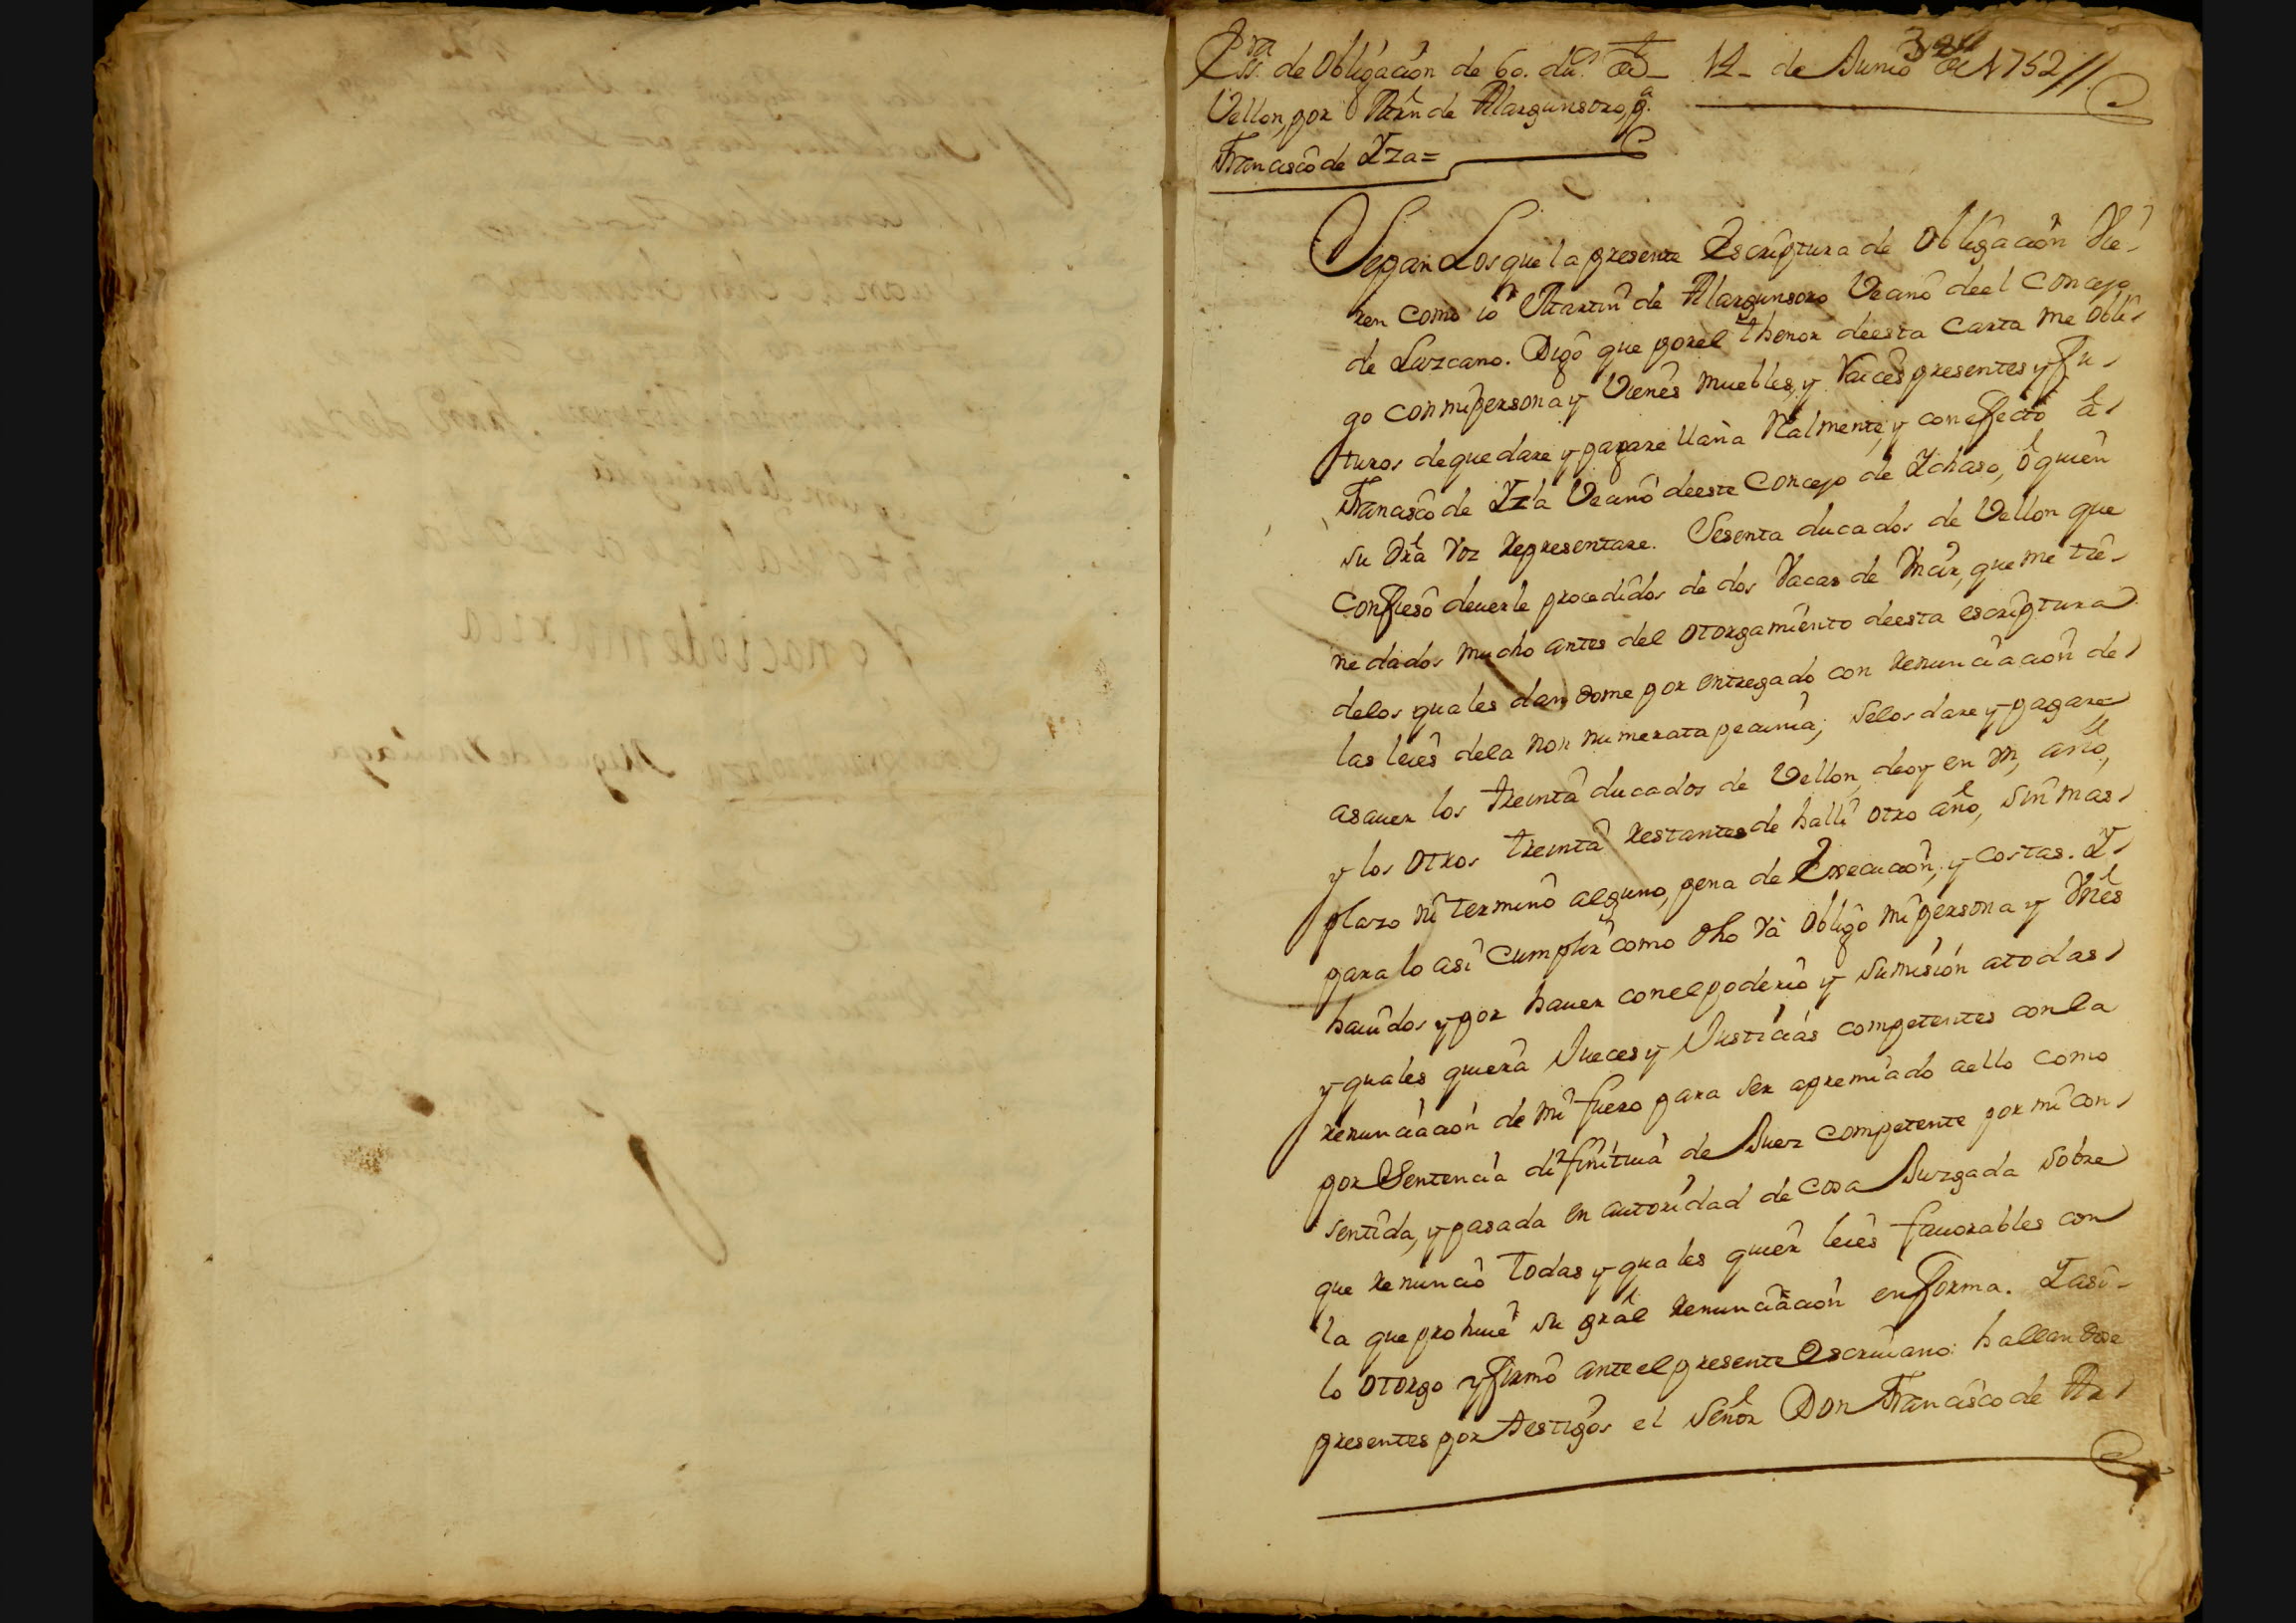 Ess.ra de Obligación de 60. du.s de
14 de Junio de 1752//
Vellon, por Marn de Alargunsoro, pa.
Francisco de Yza =
Sepan Los que la presente Escriptura de Obligación Vie-
ren como io Martin de Alargunsoro Vecino deel Concejo
de Lazcano. Digo que por el thenor deesta Carta me obli-
go con mi persona y Vienes muebles, y Raices presentes y fu-
turos de que dare y pagare llana Realmente, y con effecto a
Francisco de Yza Vecino deeste Concejo de Ychaso, o quien
su dra voz Representare. Sesenta ducados de Vellon que
Confieso deuerle procedidos de dos Vacas de Vnir, que me tie-
ne dados mucho antes del otorgamiento deesta escriptura
delos quales dandome por entregado con Renunciacion de
las leies dela non numerata pecunia; se los dare y pagare
asauer los treinta ducados de Vellon, deoy en Vn, año,
y los otros treinta Restantes de halli otro año, sin mas
plazo ni termino alguno, pena de Execucion, y costas. Y
para lo asi Cumplir como dho va obligo mi persona y Vnes
hauidos y por hauer con el poderio y sumisión atodas
y quales quiera Jueces y Justicias competentes con la
Renunciacion de mi fuero para ser apremiado aello como
por Sentencia difinitiua de Juez Competente por mi con-
sentida, y pasada en autoridad de cosa Juzgada sobre
que Renuncio todas y quales quier leies fauorables con
la que prohiue su gral Renunciacion en forma. Y asi
lo otorgo y firmo ante el presente Escriuano: hallandose
presentes por testigos el Señor Don Francisco de Ar